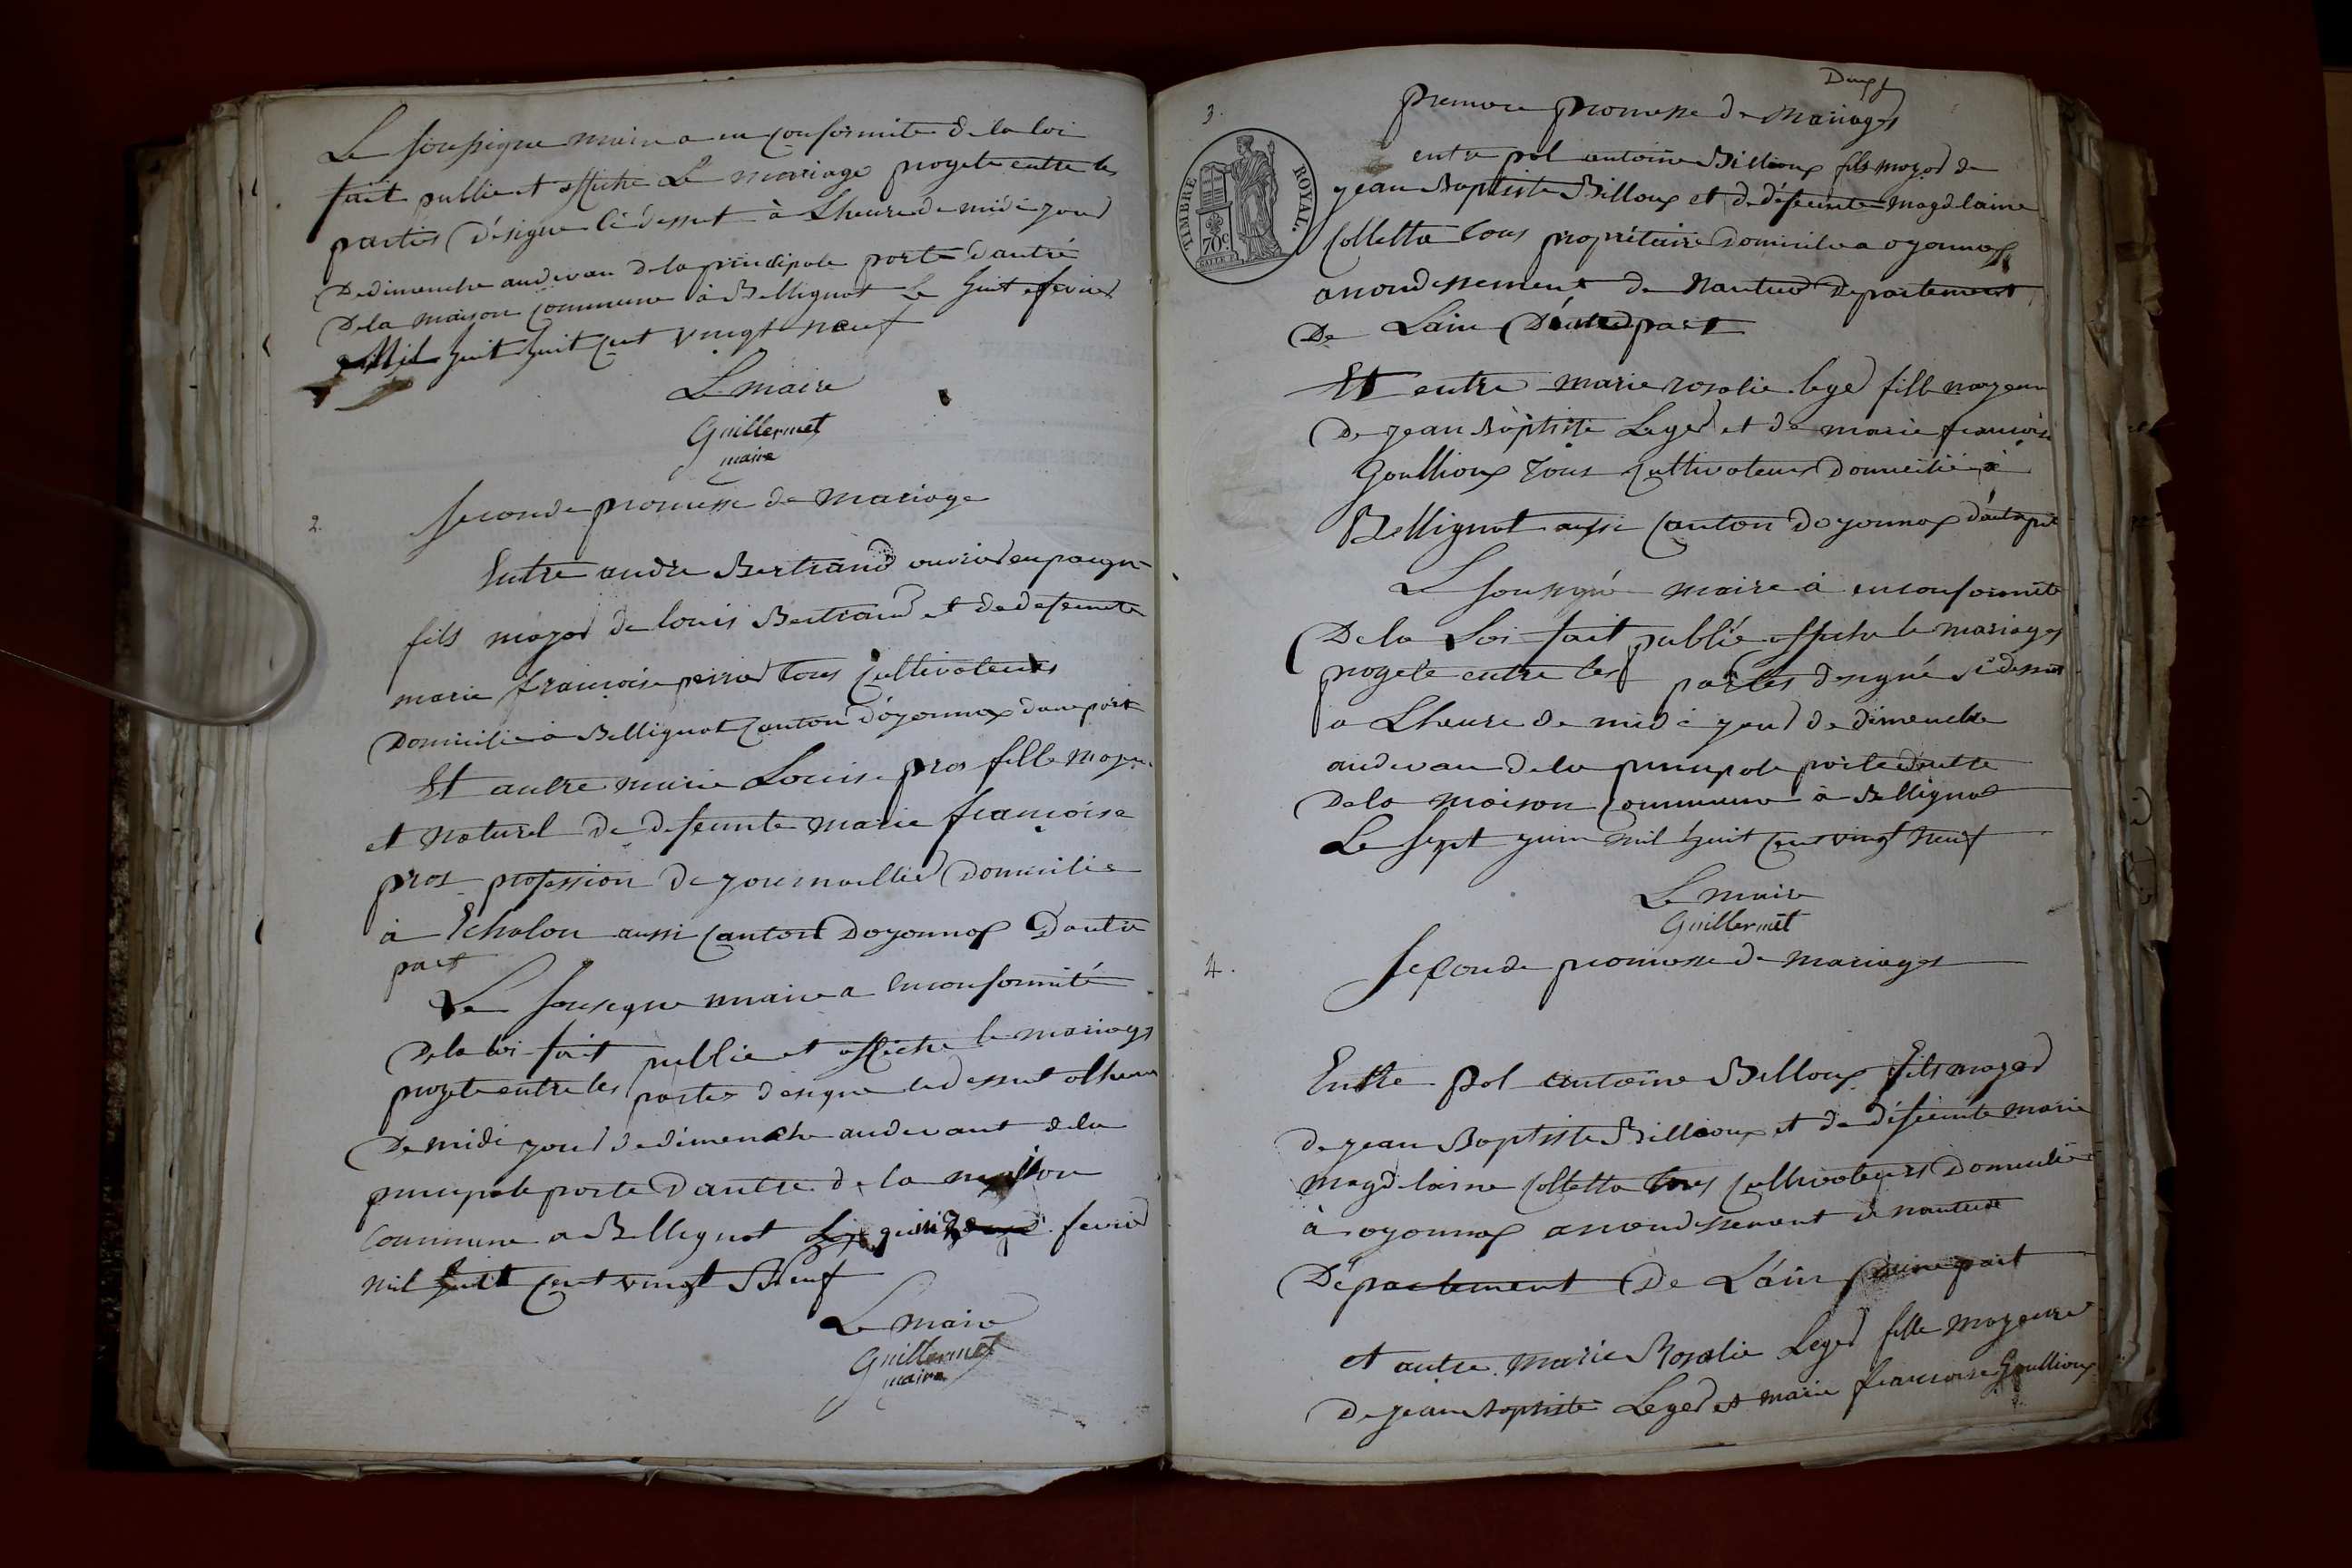 Le soussigne maire a en conformite de la loi
fait publie et affiche Le mariage progete entre les
parties désigne cidessut à Lheure de midi jour
De dimenche audevan de la principale porte dantré
De la maison commune à Bellignat Le huit fevrier
Mil huit huit cent vingt neuf
Le maire
Guillermet
maire
2.
seconde promesse de mariage
Entre andre Bertrand ouvrier en paigne
fils major de louis Bertrand et de defeunte
marie françoise perrier tous cultivateurs
Domicilié à Bellignat canton d'óyonnax dune part
Et autre marie Louise pros fille majeu
et naturel de defeunte marie françoise
pros profession de journallier domicilié
à Echalon aussi canton Doyonnax Dautre
part
Le sousigne maire a enconformité
De la loi fait publie et affiche le mariage
progete entre les parties designe cidessut alheure
De midi jour de dimenche audevant de la
principale porte Dantre de la maison
Commune a Bellignat Le quinze fevrier
mil huit cent vingt Neuf
Le maire
Guillermet
maire
Deux
3.
premiere promesse de mariage
TIMBRE ROYAL.
70c
entre pol antoine Billioux fils major de
jean Baptiste Billoux et de défeunte magdelaine
Colletta tous propriétaire Domicilie a oyonnax
arrondissement de Nantua Departement
De Lain D'une part
Et entre marie rosalie leger fille majeur
De jean Baptiste Leger et de marie francoise
Goullioux Tous cultivateurs Domicilié à
Bellignat aussi canton Doyonnax d'autre part
Le sousigné maire à enconformité
De la Loi fait publié affiche le mariage
progeté entre les parties designé cidessus
a Lheure de midi jour de dimenche
audevan de la principale porte dentre
De la maison commune à Bellignat
Le sept juin mil huit cent vingt neuf
Le maire
Guillermet
4.
seconde promesse de mariage
Entre pol antoine Billoux fils major
de jean Baptiste Billioux et de défeunte marie
magdelaine Colletta tous cultivateurs domicilié
à oyonnax arrondissement de nantua
Département De Láin d'une part
et autre marie Rosalie Leger fille majeure
De jean baptiste Leger et marie francoise Goullioux